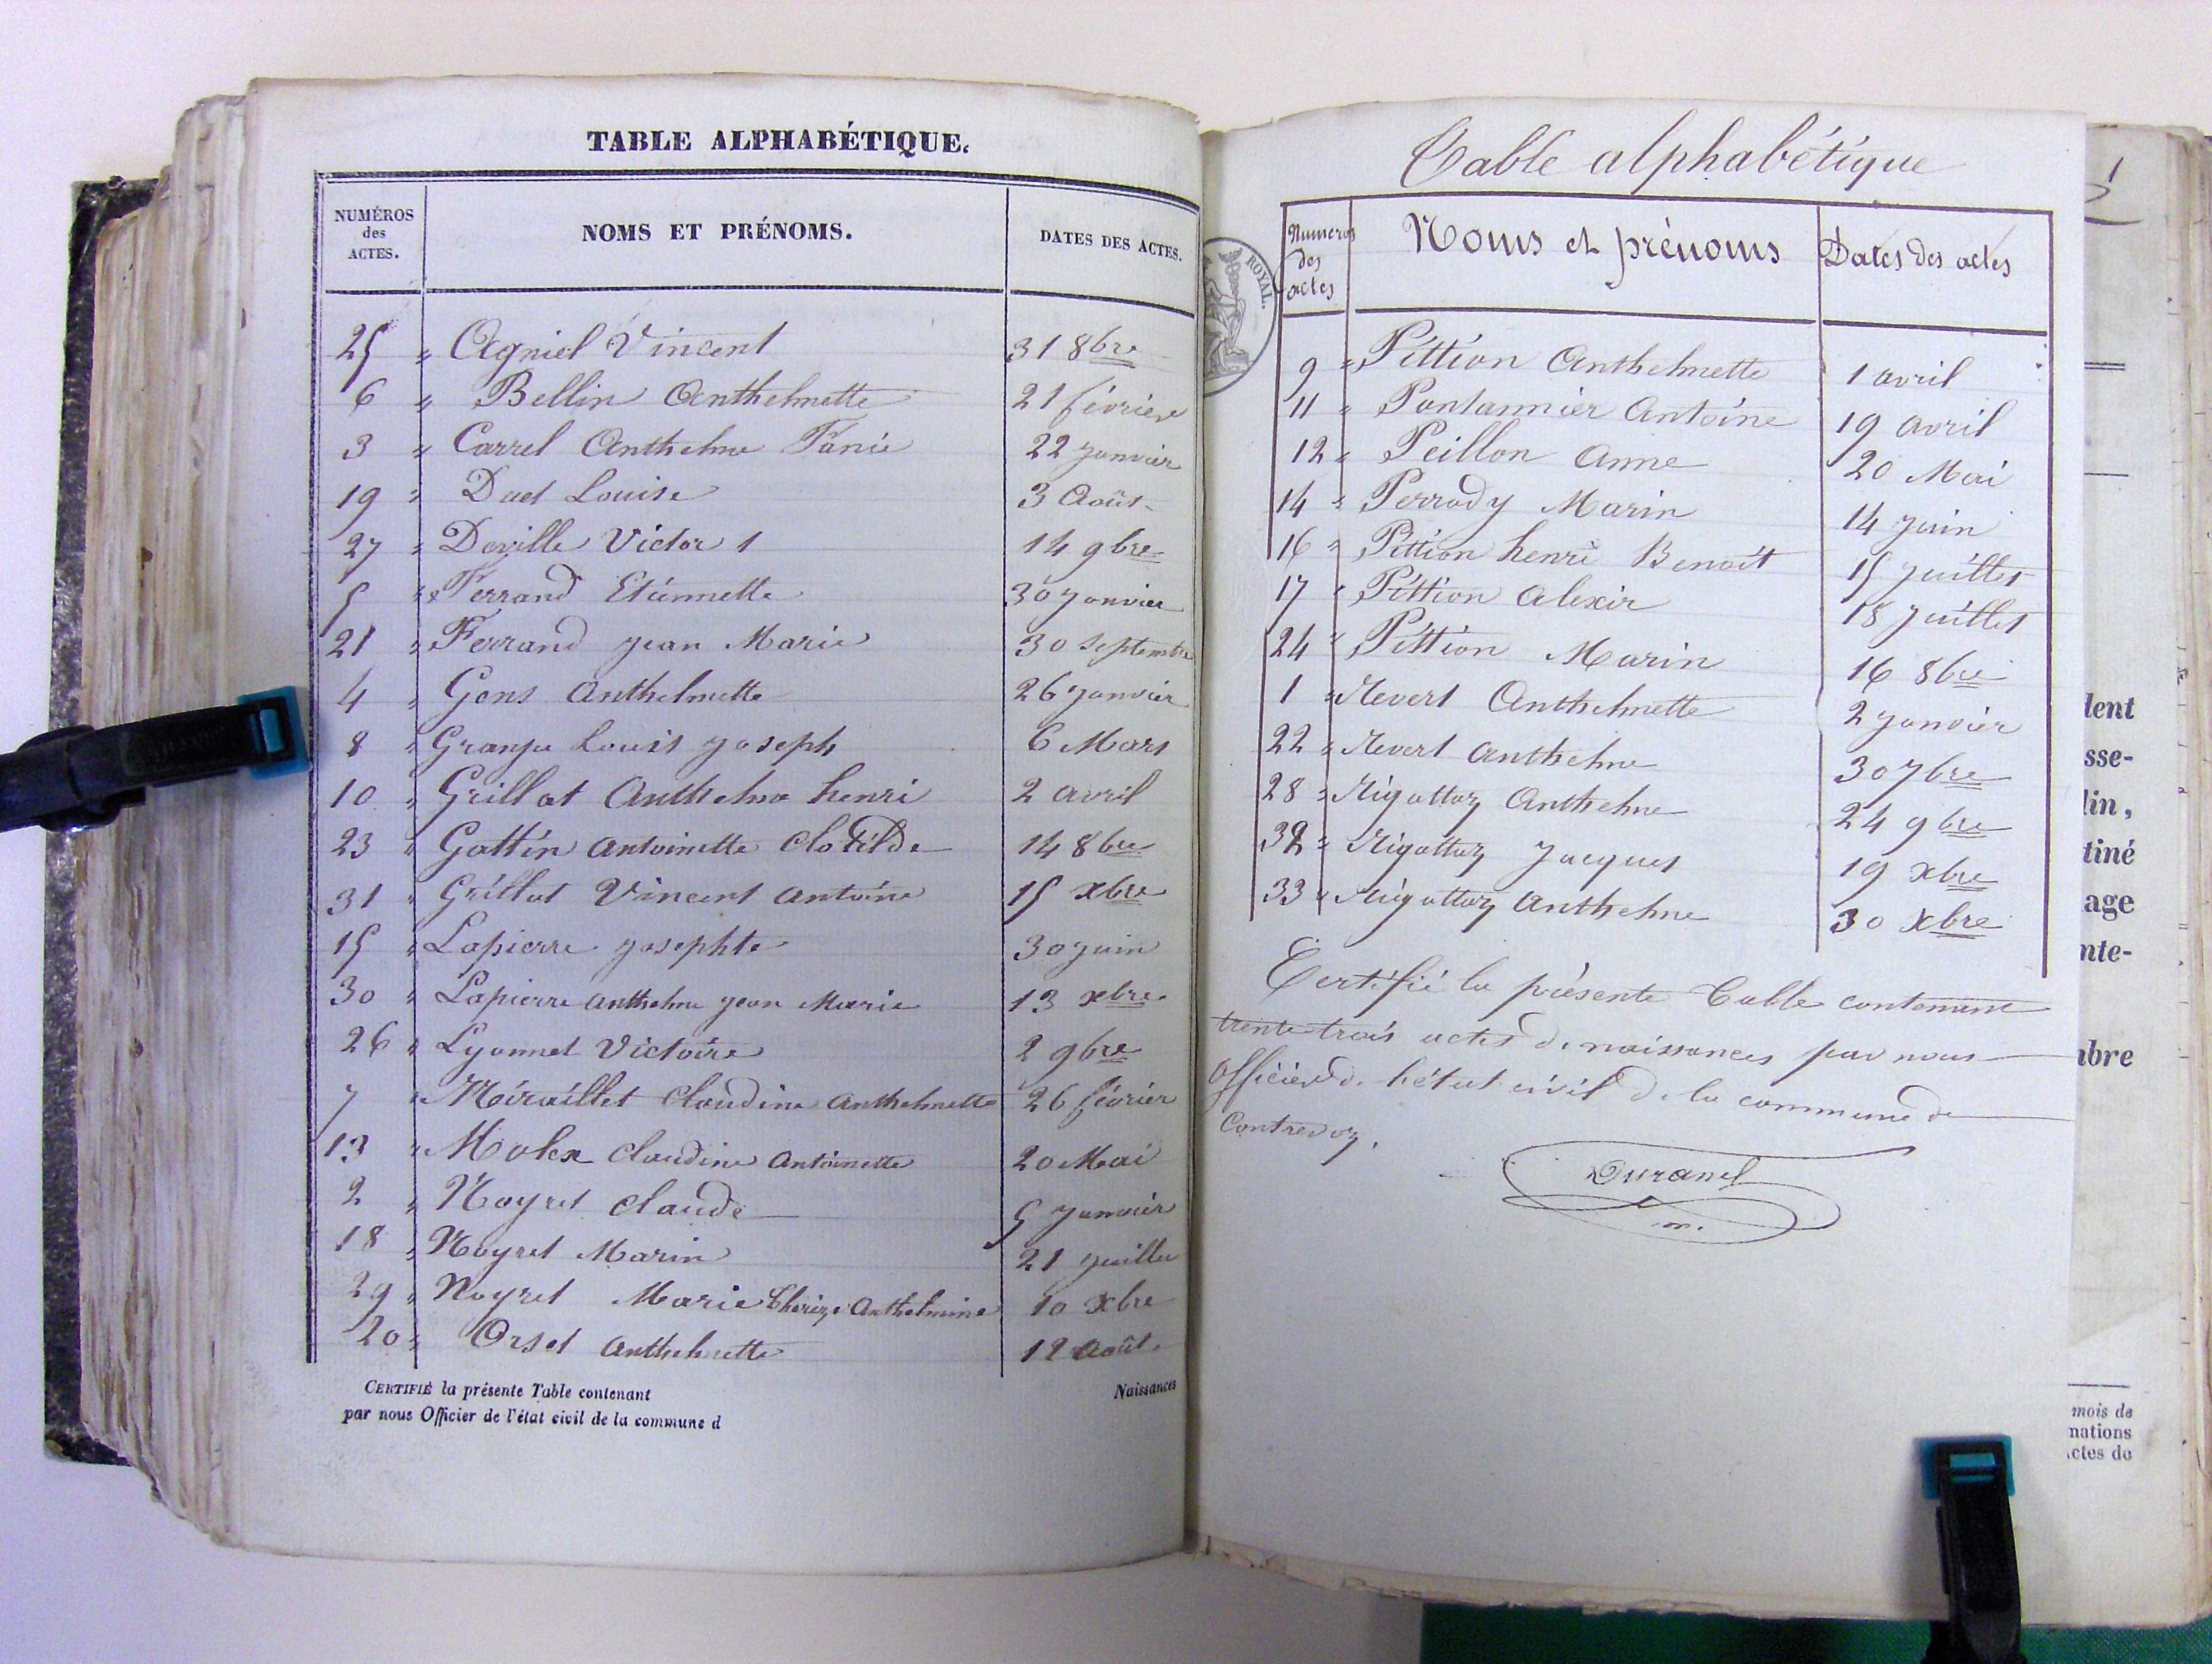 TABLE ALPHABÉTIQUE.
NUMÉROS des ACTES. NOMS ET PRÉNOMS. DATES DES ACTES.
25 " Agniel Vincent 31 8bre
6 " Bellin Anthelmette 21 février
3 " Carrel Anthelme Fanie 22 janvier
19 " Duet Louise 3 Août
27 " Deville Victor 1 14 9bre
5 " Ferrand Etiennette 30 janvier
21 " Ferrand jean Marie 30 septembre
4 " Gens Anthelmette 26 janvier
8 " Granju Louis joseph 6 Mars
10 " Grillot Anthelme henri 2 avril
23 " Gottin Antoinette Clotilde 14 8bre
31 " Grillot Vincent Antoine 15 xbre
15 " Lapierre josephte 30 juin
30 " Lapierre Anthelme jean Marie 13 xbre
26 " Lyonnet Victoire 2 9bre
7 " Miraillet Claudine Anthelmette 26 février
13 " Molex Claudine Antoinette 20 Mai
2 " Noyret Claude 5 janvier
18 " Noyret Marin 21 juillet
29 " Noyret Marie Thérèze Anthelmine 10 xbre
20 " Orset Anthelmette 12 Août
CERTIFIÉ la présente Table contenant Naissances
par nous Officier de l'état civil de la commune d
Table alphabétique
Numeros des actes Noms et prénoms Dates des actes
ROYAL.
9 " Pittion Anthelmette 1 avril
11 " Pontannier Antoine 19 avril
12 " Peillon Anne 20 Mai
14 " Perrody Marin 14 juin
16 " Pittion henri Benoît 15 juillet
17 " Pittion Alexis 18 juillet
24 " Pittion Marin 16 8bre
1 " Revert Anthelmette 2 janvier
22 " Revert Anthelme 30 7bre
28 " Rigottaz Anthelme 24 9bre
32 " Rigottaz Jacques 19 xbre
33 " Rigottaz Anthelme 30 xbre
Certifié la présente Table contenant
trente trois actes de naissances par nous
Officier de l'état civil de la commune de
Contrevoz.
Duranel
m.
lent
sse-
lin,
tiné
age
nte-
bre
mois de
nations
ctes de